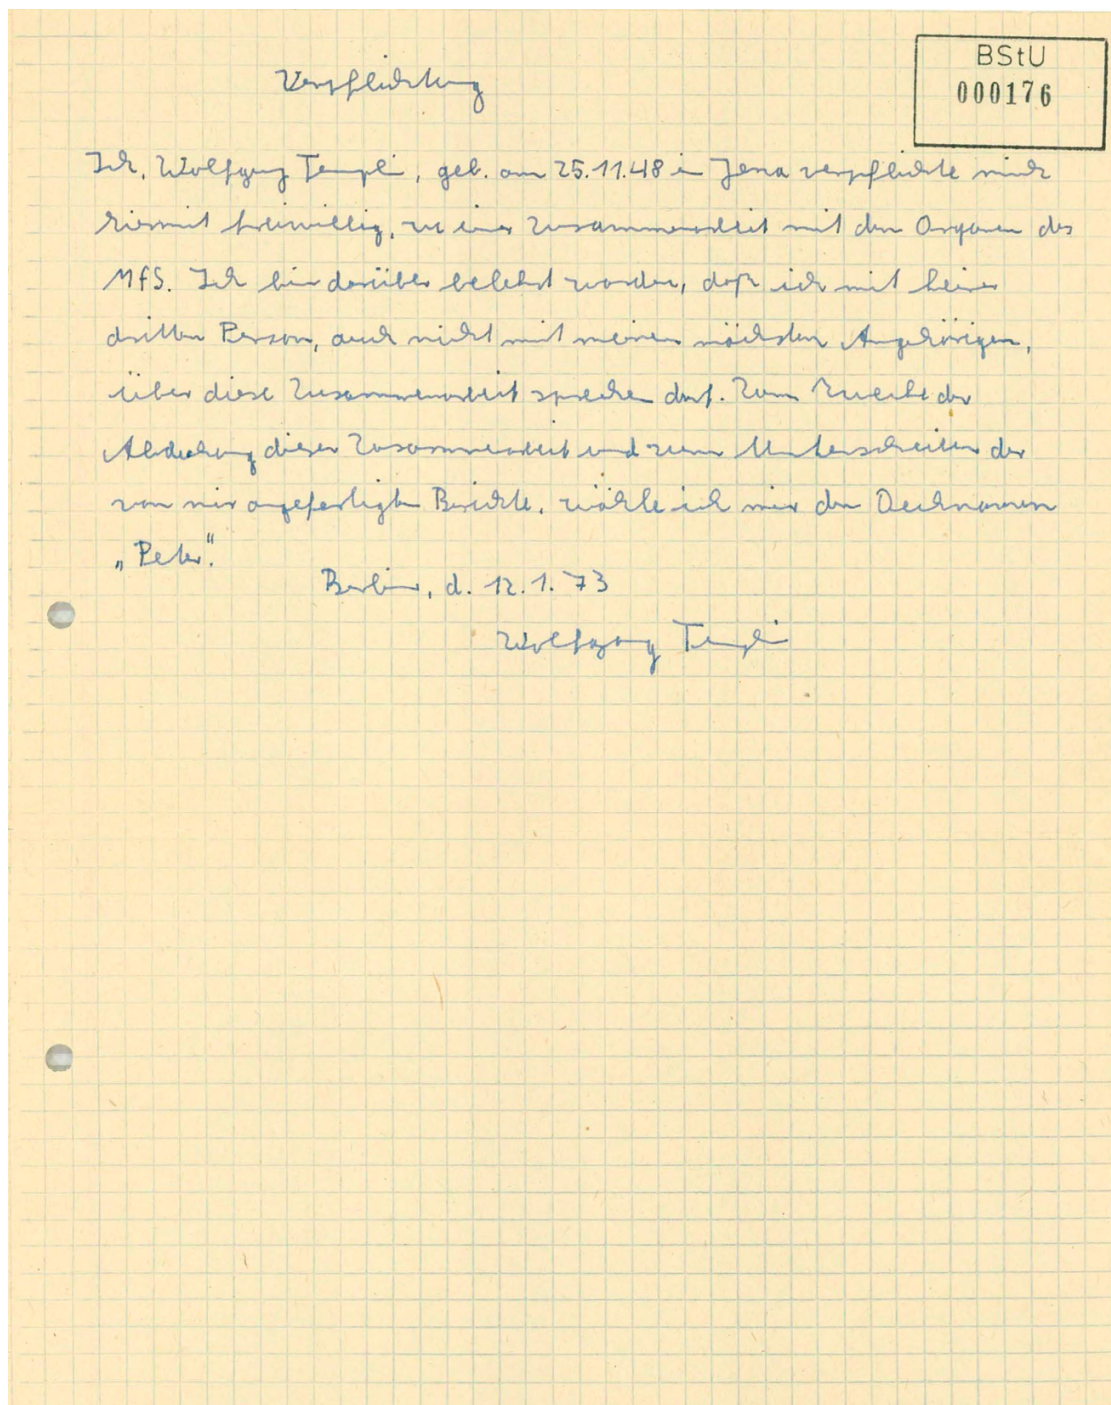 BStU
000176
Verpflichtung
Ich, Wolfgang Templin, geb. am 25.11.48 in Jena verpflichte mich
hiermit freiwillig, zu einer Zusammenarbeit mit den Organen des
MfS. Ich bin darüber belehrt worden, daß ich mit keiner
dritten Person, auch nicht mit meinen nächsten Angehörigen,
über diese Zusammenarbeit sprechen darf. Zum Zwecke der
Abdeckung dieser Zusammenarbeit und zum Unterschreiben der
von mir angefertigten Berichte, wähle ich mir den Decknamen
„Peter".
Berlin, d. 12.1.73
Wolfgang Templin